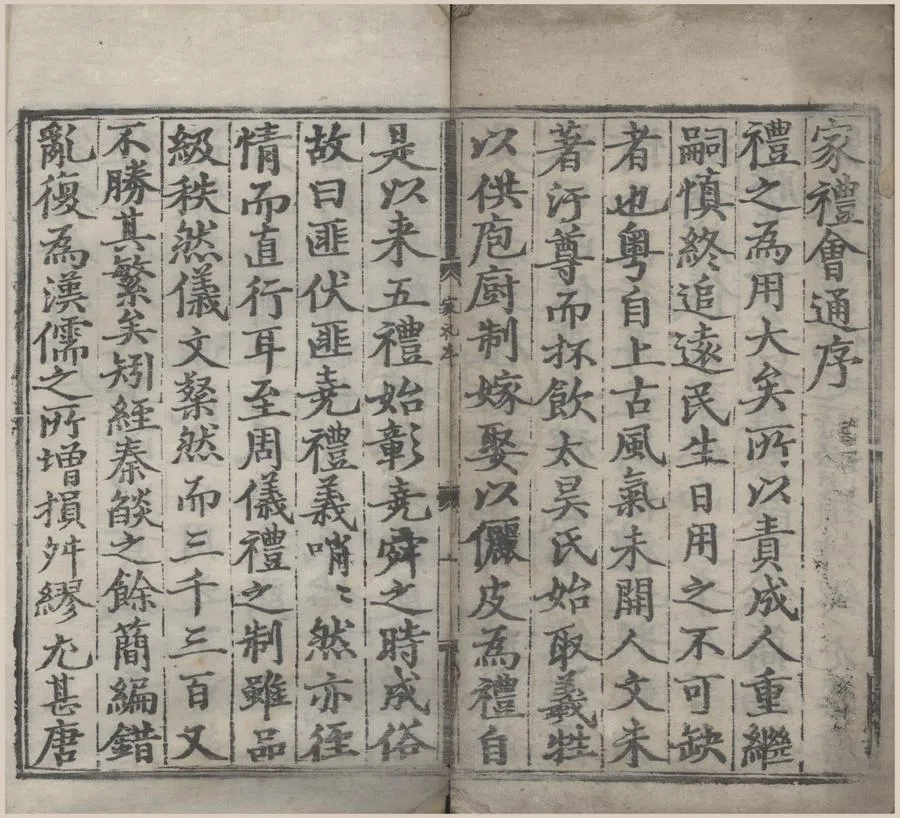 家禮會通序
禮之為用大矣所以責成人重繼
嗣慎終追遠民生日用之不可缺
者也粵自上古風氣未開人文未
著汙尊而抔飲太昊氏始取羲牲
以供庖廚制嫁娶以儷皮為禮自
家礼序
是以来五禮始彰堯舜之時成俗
故曰匪伏匪堯禮義哨〻然亦徑
情而直行耳至周儀禮之制雖品
級秩然儀文粲然而三千三百又
不勝其繁矣矧經秦燄之餘蕳編錯
亂復為漢儒之所增損舛繆尤甚唐